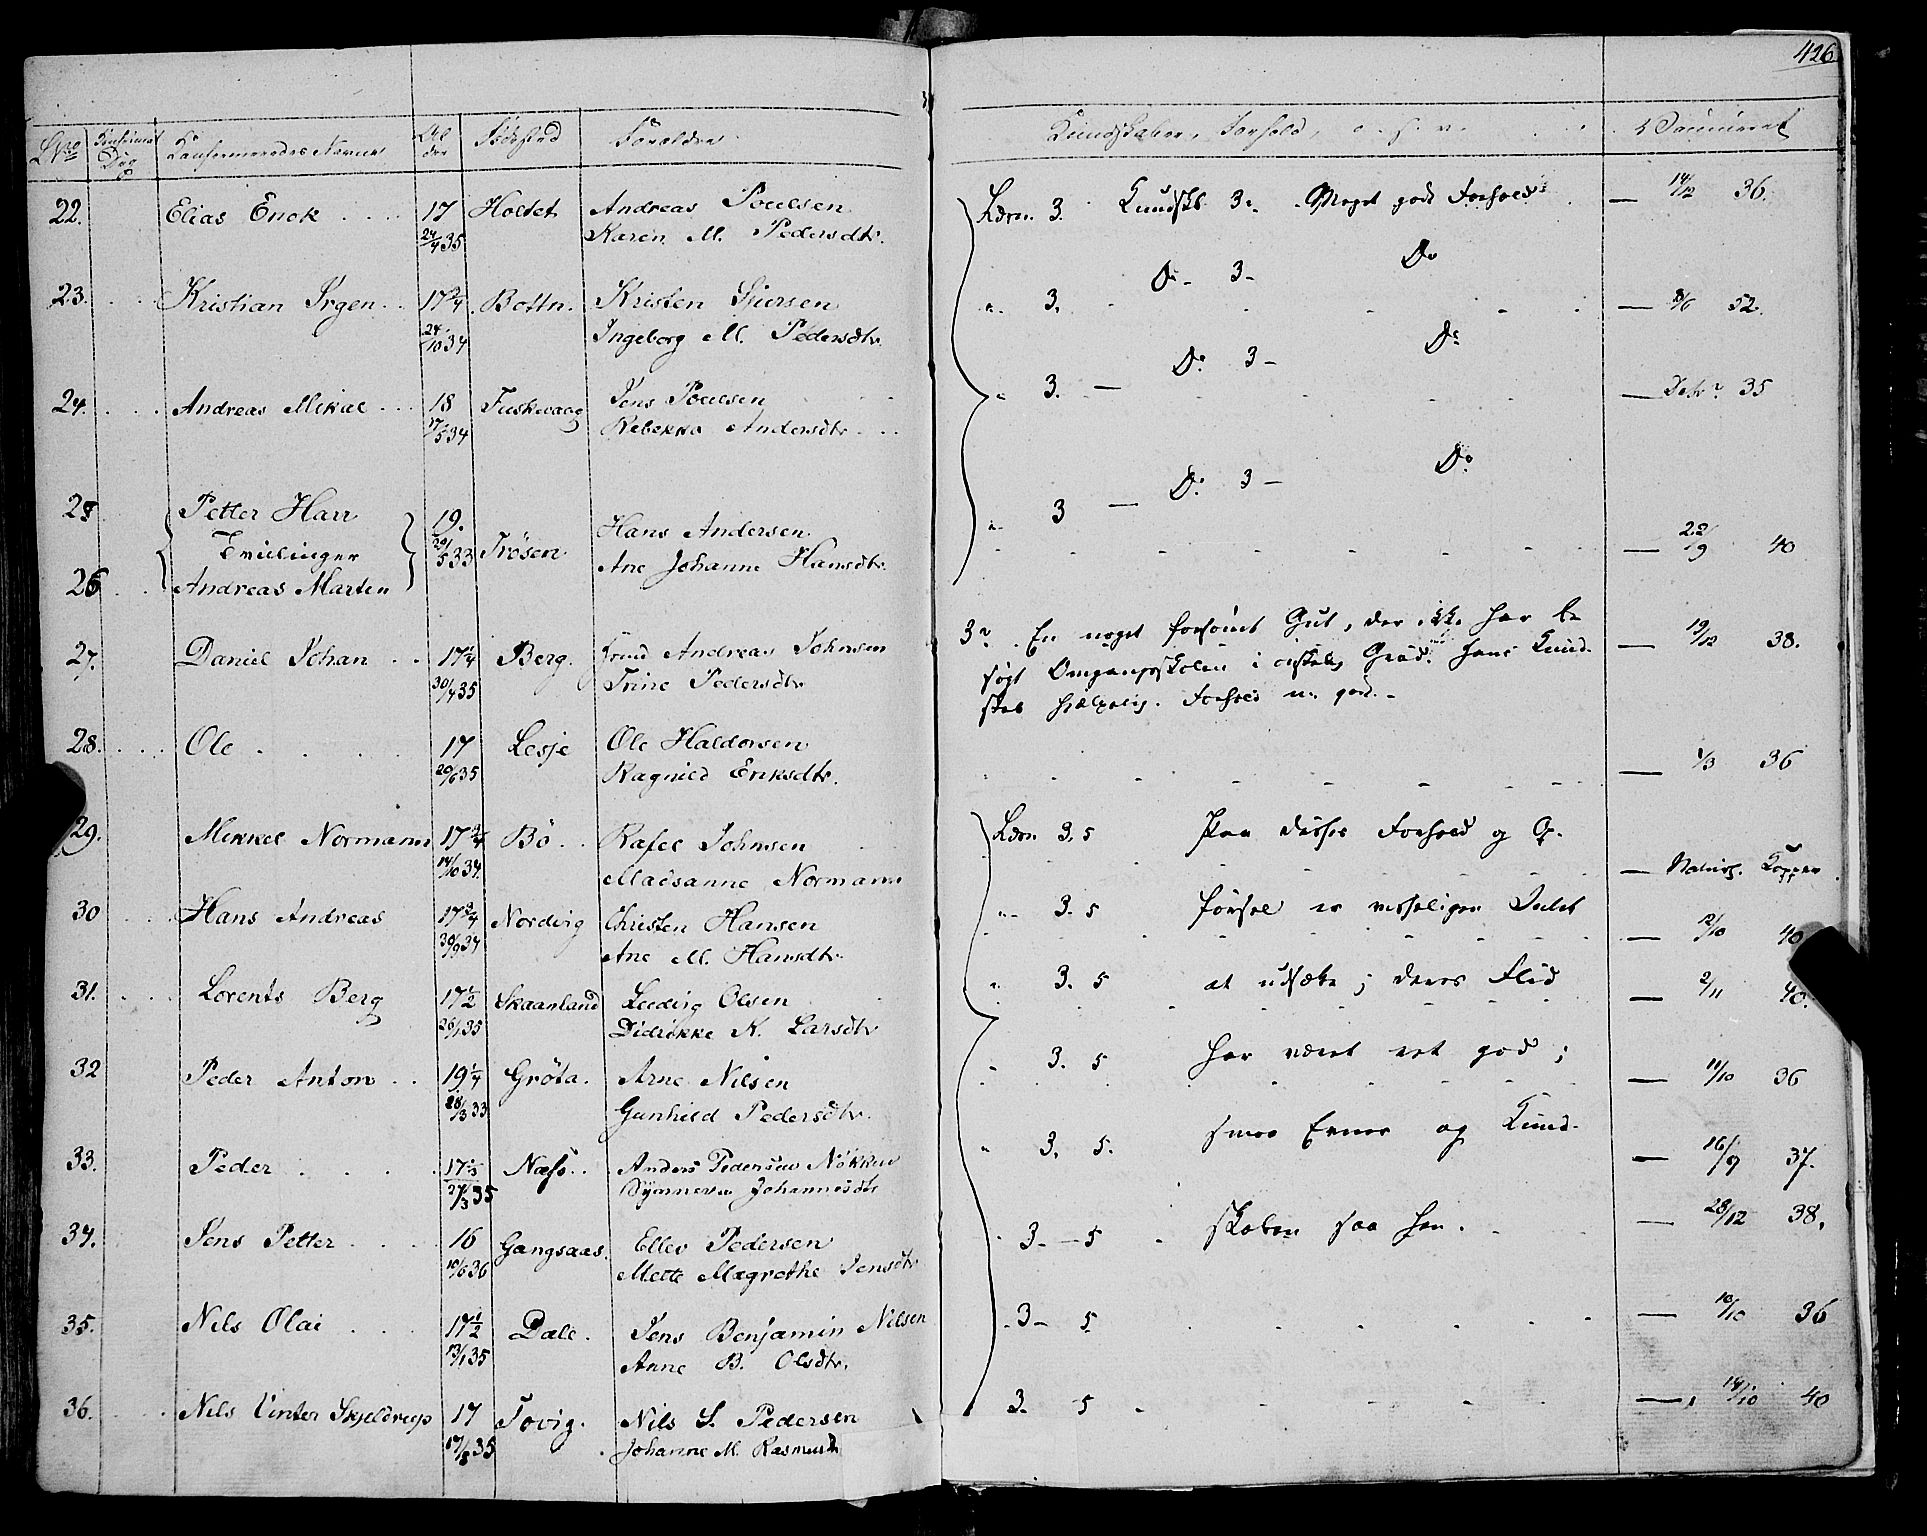 426
LNo Konfirmat. Dag Konfirmeredes Navne Alder Födested Forældre Kundskaber, Forhold, o. s. v. Vaccineret
22. Elias Enok 17 Holtet Andreas Poulsen Læsn. 3. Kundskb. 3. Meget godt Forhold 14/12 36.
24/4 35 Karen M. Pedersdtr.
23. Kristian Irgen 17 3/4 Bottn. Kristen Siversen " 3. Do 3 Do 8/6 52.
24/10 34 Ingeborg M. Pedersdtr.
24. Andreas Mikal 18 Fuskevaag Jens Poulsen " 3. Do 3 Do 35
17/5 34 Rebekka Andersdtr.
25 Petter Harr 19. Hans Andersen " 3 Do 3 Do
Tvillinger 5 33 Trösen 22/9 40
26 Andreas Marten Ane Johanne Hansdtr.
27. Daniel Johan 17 1/4 Berg. Andreas Johnsen 3 En noget forsömt Gut, der ikke har be 19/12 38.
30/4 35 Trine Pedersdtr. sögt Omgangsskolen i Grad. Hans Kund-
skab hjælpelig. Forhold m. god.
28. Ole 17 Lesje Ole Haldorsen 1/3 36
20/6 35 Ragnild Eriksdtr.
29. Mikkel Normann 17 3/4 Bö Rafel Johnsen Læsn. 3. 5 Paa disses Forhold og Op- Naturl. Kopper
14/10 34. Madsanne Normann
30 Hans Andreas 17 3/4 Nordvig Christen Hansen " 3. 5 försel er Intet 12/10 40
30/9 34 Ane M. Hansdtr.
31. Lorents Berg 17 1/2 Skaanland Ludvig Olsen " 3. 5 at udsætte; deres Flid 2/11 40.
26/1 35 Didrikke K. Larsdtr
32 Peder Anton 19 1/4 Gröta. Arne Nilsen " 3. 5 har været ret god; 11/10 36
28/3 33 Gunhild Pedersdtr.
33. Peder 17 1/3 Næss. Anders Pedersen Nökken " 3. 5. smaa Evner og Kund- 16/9 37.
27/3 35 Synneva Johannesdtr
34. Jens Petter 16 Gangsaas. Ellev Pedersen 3 5 skaben saa hen. 28/12 38.
10/6 36 Mette Magrethe Jensdtr
35. Nils Olai 17 1/2 Dale. Jens Benjamin Nilsen 3 5 10/10 36
13/1 35 Anne B. Olsdtr.
36. Nils Vinter Skjeldrup 17 Tovig. Nils S. Pedersen 3. 5 14/10 40
35 Johanne M. Rasmusd